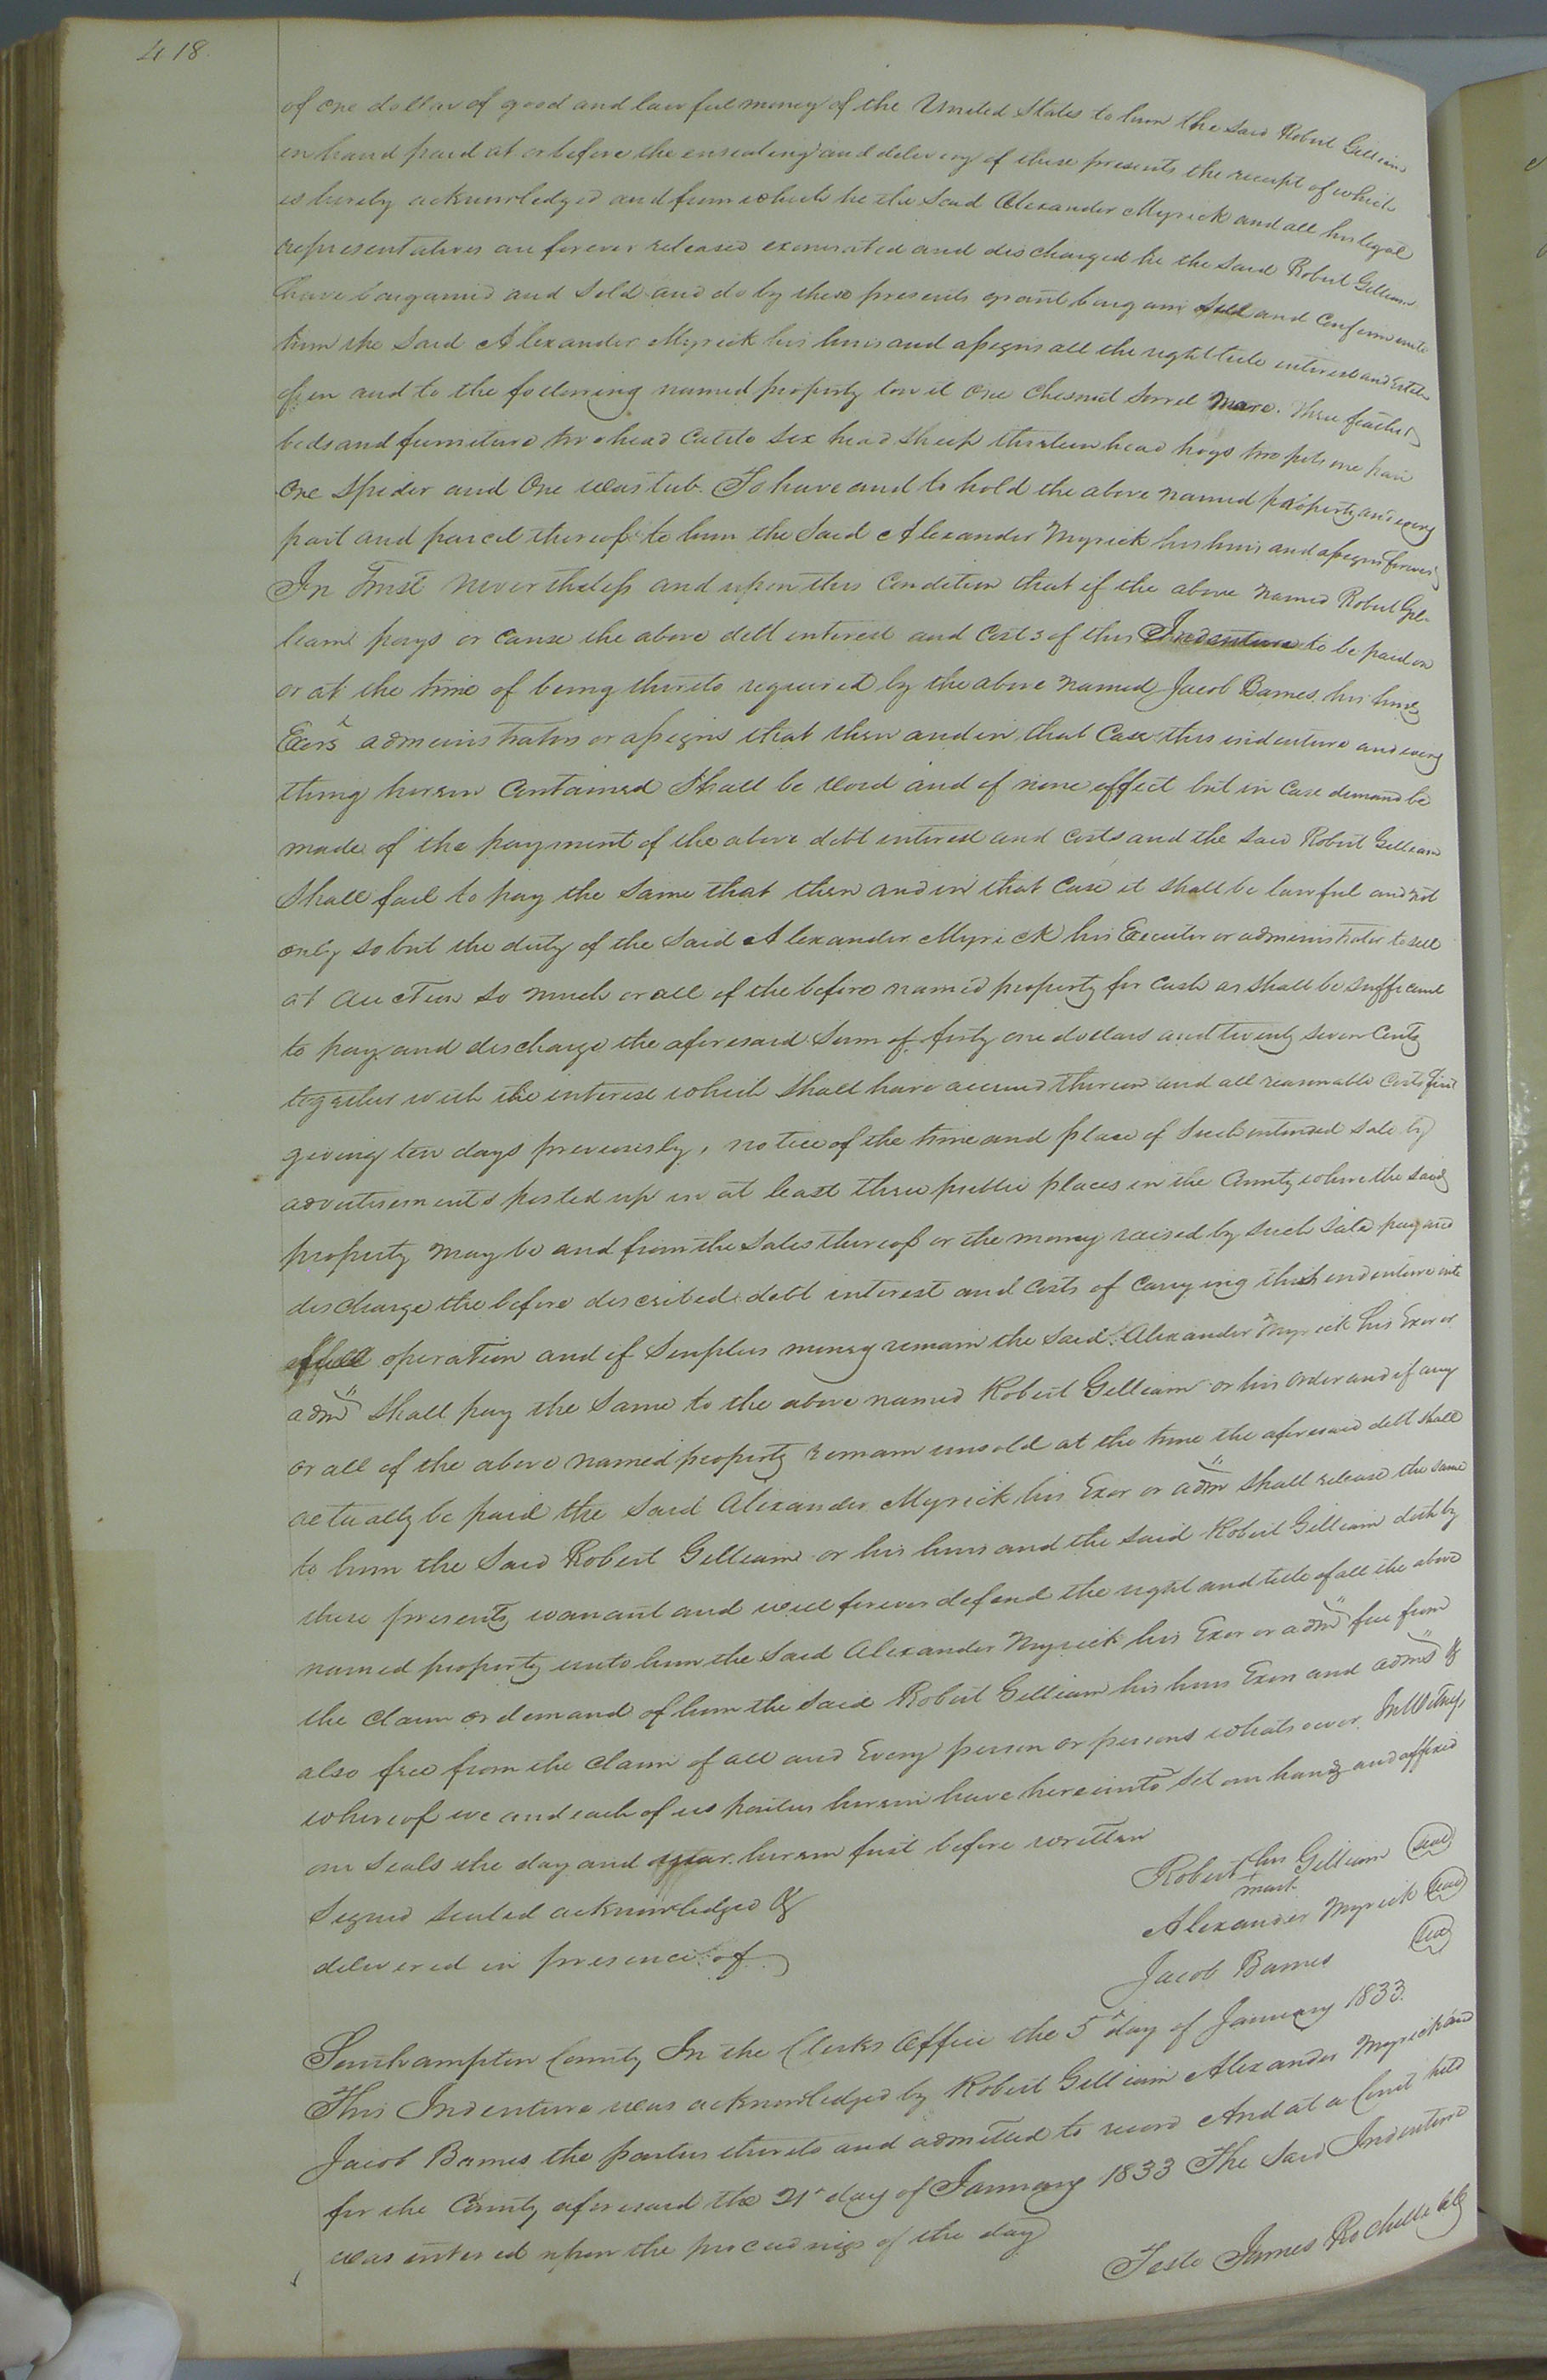 418.
of one dollar of good and lawful money of the United States to him the said Robert Gilliam
in hand paid at or before the ensealing and delivery of these presents the receipt of which
is hereby acknowledged and from which he the said Alexander Myrick and all his legal
representatives are forever released exonerated and discharged he the said Robert Gilliam
have bargained and sold and do by these presents grant bargain sell and confirm unto
him the said Alexander Myrick his heirs and assigns all the right title interest and Estate
of in and to the following named property to wit One Chesnut Sorrel Mare. Three feather
beds and furniture two head Cattle six head sheep thirteen head hogs two pots one pair
One Spider and One was tub. To have and to hold the above named property and every
part and parcel thereof to him the said Alexander Myrick his heirs and assigns forever
In Trust Nevertheless and upon this Condition that if the above named Robert Gil-
liam pays or cause the above debt interest and Costs of this Indenture to be paid on
or at the time of being thereto required by the above named Jacob Barnes his heirs
Exors administrators or assigns that then and in that Case this indenture and every
thing herein Contained Shall be void and of none effect but in Case demand be
made of the payment of the above debt interest and Costs and the said Robert Gilliam
Shall fail to pay the Same that then and in that Case it shall be lawful and not
only so but the duty of the said Alexander Myrick his Executor or administrator to sell
at Auction so much or all of the before named property for Cash as shall be sufficient
to pay and discharge the aforesaid Sum of forty one dollars and twenty seven Cents
together with the interest which shall have accrued thereon and all reasonable Costs first
giving ten days previously, notice of the time and place of Such intended sale by
advertisements posted up in at least three public places in the County where the said
property may be and from the sales thereof or the money raised by such sale pay and
discharge the before described debt interest and Costs of Carrying this indenture into
full operation and if Surplus money remain the said Alexander Myrick his Exor or
adm" shall pay the Same to the above named Robert Gilliam or his order and if any
or all of the above named property remain unsold at the time the aforesaid debt shall
actually be paid the said Alexander Myrick his Exor or adm" shall release the same
to him the Said Robert Gilliam or his heirs and the said Robert Gilliam doth by
these presents warrant and will forever defend the right and title of all the above
named property unto him the Said Alexander Myrick his Exor or adm" free from
the Claim or demand of him the said Robert Gilliam his heirs Exors and adms" &
also free from the Claim of all and Every person or persons whatsoever. In Witness
whereof we and each of us parties herein have hereunto set our hands and affixed
our Seals the day and year herein first before written
Signed sealed acknowledged &
delivered in presence of
Robert his Gilliam seal
mark
Alexander Myrick seal
Jacob Barnes seal
Southampton County In the Clerks Office the 5 day of January 1833.
This Indenture was acknowledged by Robert Gilliam Alexander Myrick and
Jacob Barnes the parties thereto and admitted to record And at a Court held
for the County aforesaid the 21 day of January 1833 The Said Indenture
was entered upon the proceedings of the day
Teste James Rochelle clk